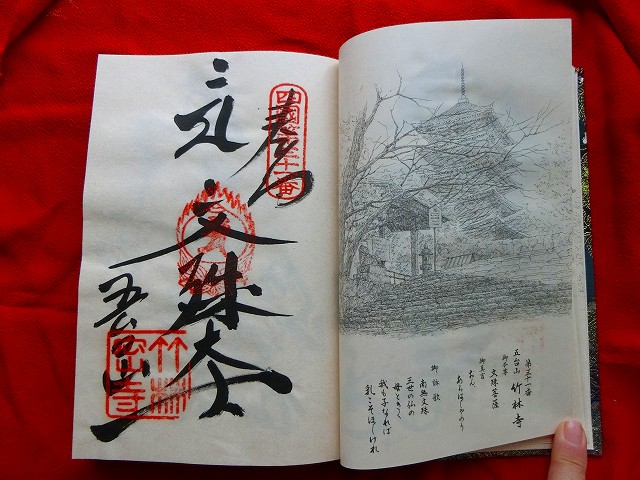 奉
四國第三十一番
文殊大士
五台山
竹林
密寺
第三十一番
五台山 竹林寺
御本尊
文殊菩薩
御真言
おん、
あらはしゃのう
御詠歌
南無文殊
三世の仏の
母ときく
我も子なれば
乳こそほしけれ